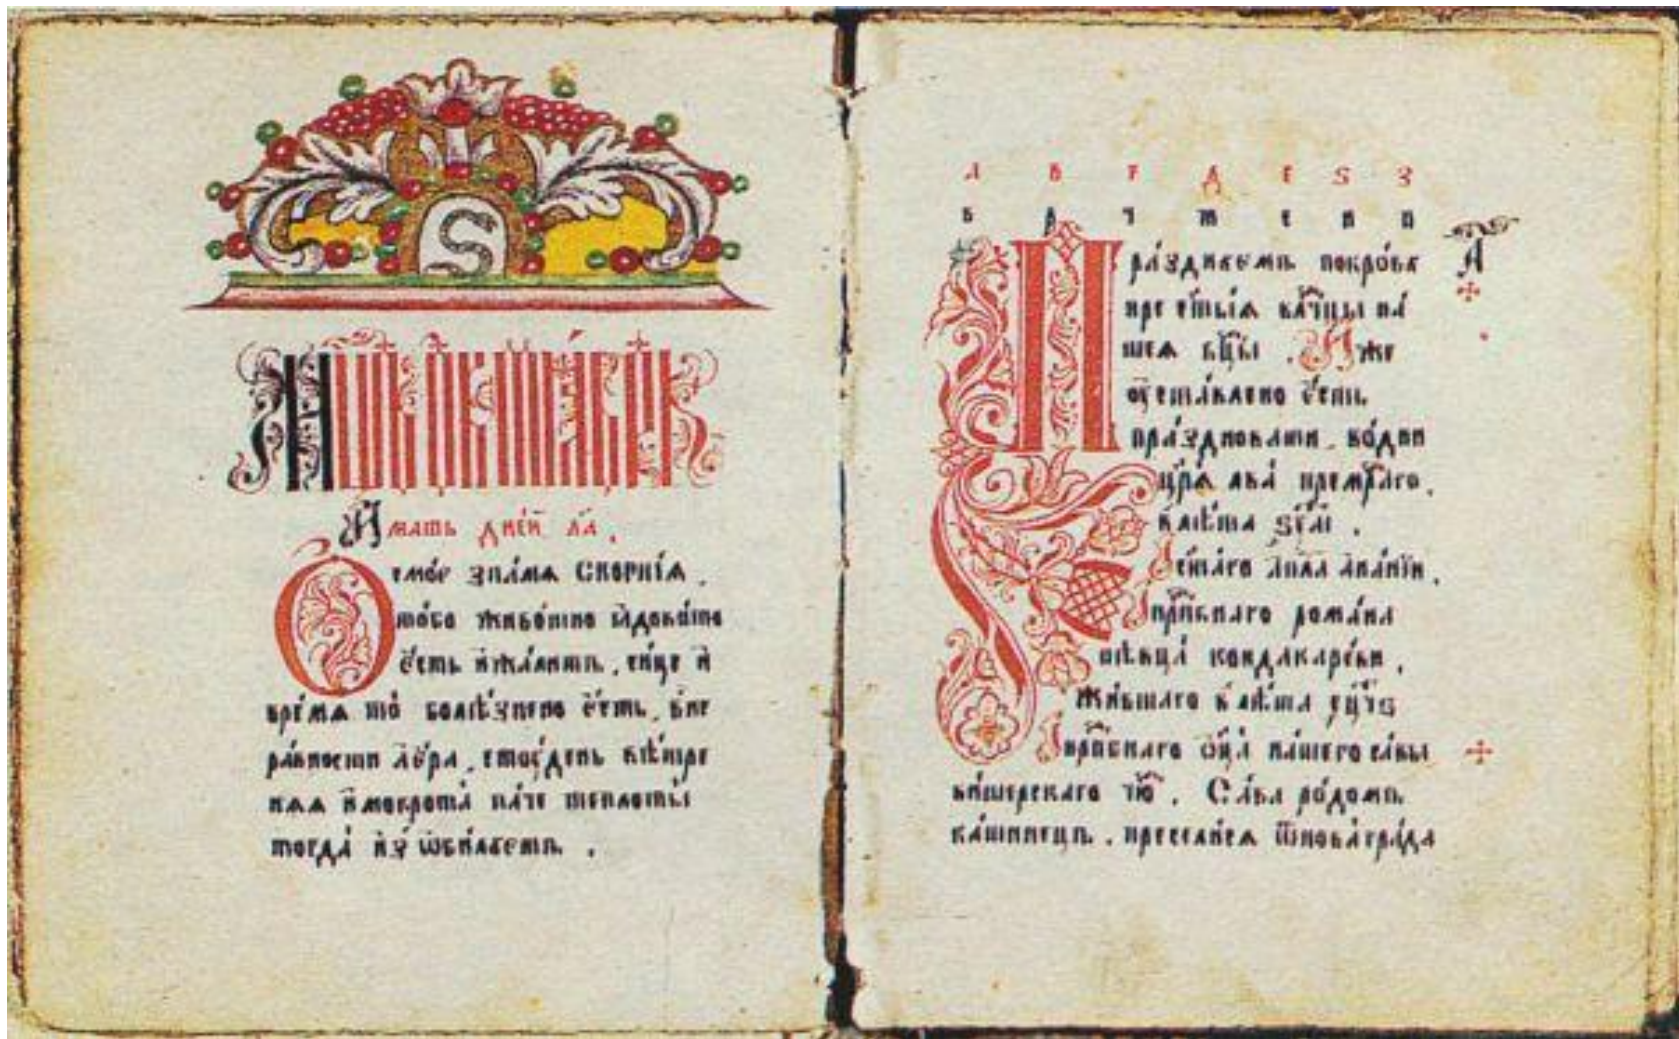 И҆мать дне́й ла҃.
Осмо́е зна́мѧ скорпі́ѧ.
то́бо живо́тно ꙗ҆дови́то
є҆́сть и҆жа́литъ. си́це и҆
вре́мѧ то̀ болѣ́знено є҆́сть. вне
ра́вности ае҆́ра. стоу́день вѣ́тре
наѧ и҆мокрота̀ па́че теплоты̀
тогда̀ и҆з̾ѡби́лꙋетъ.
а в г д е ѕ з
б в ч п с н п
Пра́зднꙋемъ покро́въ
пре с҃ты́ѧ влⷣчцы на́
шеѧ бц҃ы. Ꙗ҆же
оу҆ста́влено є҆́сть
пра́здновати. во́дни
цр҃ѧ льва̀ премⷣраго.
вꙿлѣ́та ѕ҃уⷢ҇і.
И҆с҃та́го а҆пⷭ҇ла а҆на́нїи.
И҆прпⷣбнаго рома́на
пѣвца̀ кондакаре́ви.
жи́вшаго влѣ́та
И҆прпⷣбнаго ѻ҆ц҃а̀ на́шего са́вы
ви́шерскаго чю҃. Са́ва ро́домъ
ка́шинецъ. пресели́сѧ ѿнова́гра́да